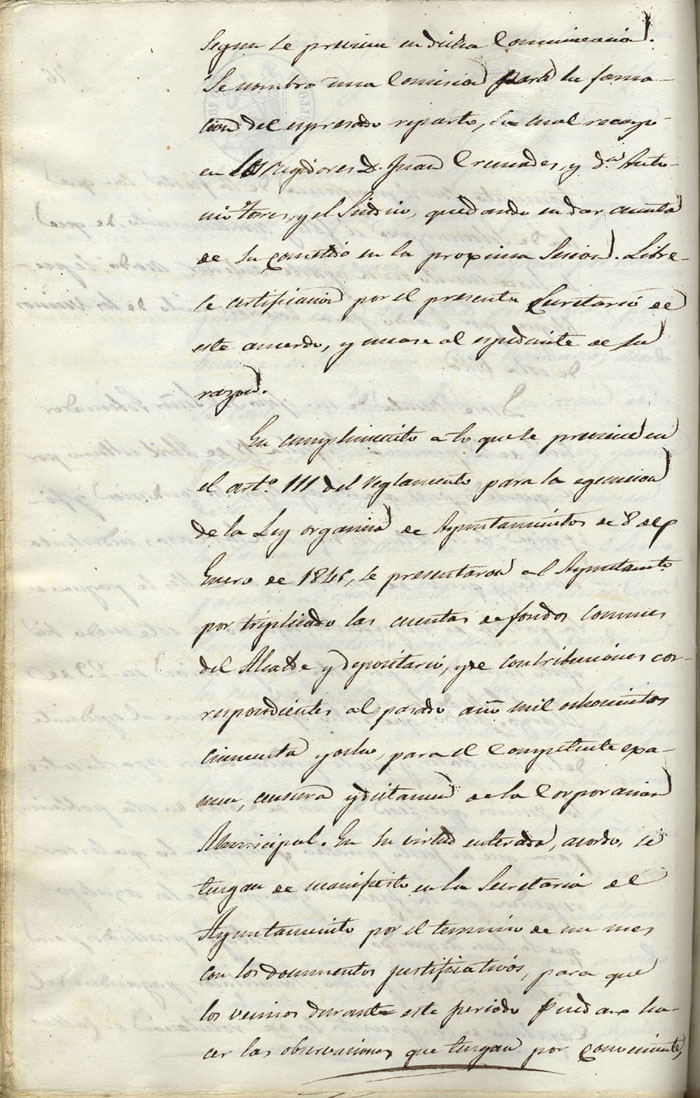 segun se previene en dicha Comunicacion.
Se nombró una Comision para la forma-
cion del espresado reparto, la cual recayo
en los Regidores D. Juan Cremades, y D.n Anto-
nio Torres, y el Sindico, quedando en dar cuenta
de su cometido en la proxima Sesion. Libre-
se certificacion por el presente Secretario de
este acuerdo, y unase al espediente de su
razon.
En cumplimiento a lo que se previene en
el art.o 111 del reglamento para la egecucion
de la Ley organica de Ayuntamientos de 8 de
Enero de 1845, se presentaron al Ayuntam.to
por triplicado las cuentas de fondos comunes
del Alcalde y depositario, y de contribuciones cor-
respondientes al pasado año mil ochocientos
cincuenta y ocho, para el competente exa-
men, censura y dictamen de la Corporacion
Municipal. En su virtud enterada, acordo, se
tengan de manifiesto en la Secretaria de
Ayuntamiento por el termino de un mes
con los documentos justificativos, para que
los vecinos durante este periodo puedan ha-
cer las observaciones que tengan por conveniente,